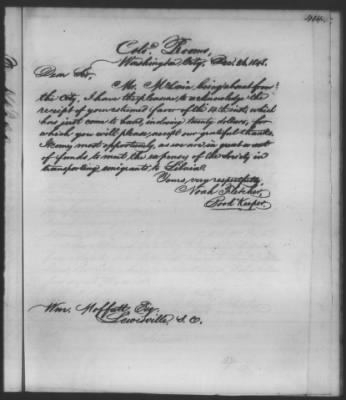 414.
Colo. Rooms,
Washington City, Dec. 26, 1845.
Dear Sir,
Mr. McLain, being absent from
the City, I have the pleasure, to acknowledge the
receipt of your esteemed favor of the inst. which
has just come to hand, inclosing twenty dollars, for
which you will please, accept our grateful thanks.
It came most opportunely, as we are in great want
of funds, to meet, the expenses of the Society in
transporting emigrants, to Liberia.
Yours, very respectfully,
Noah Fletcher,
Book Keeper.
Wm. Moffatt, Esq.
Lewisville, S. C.